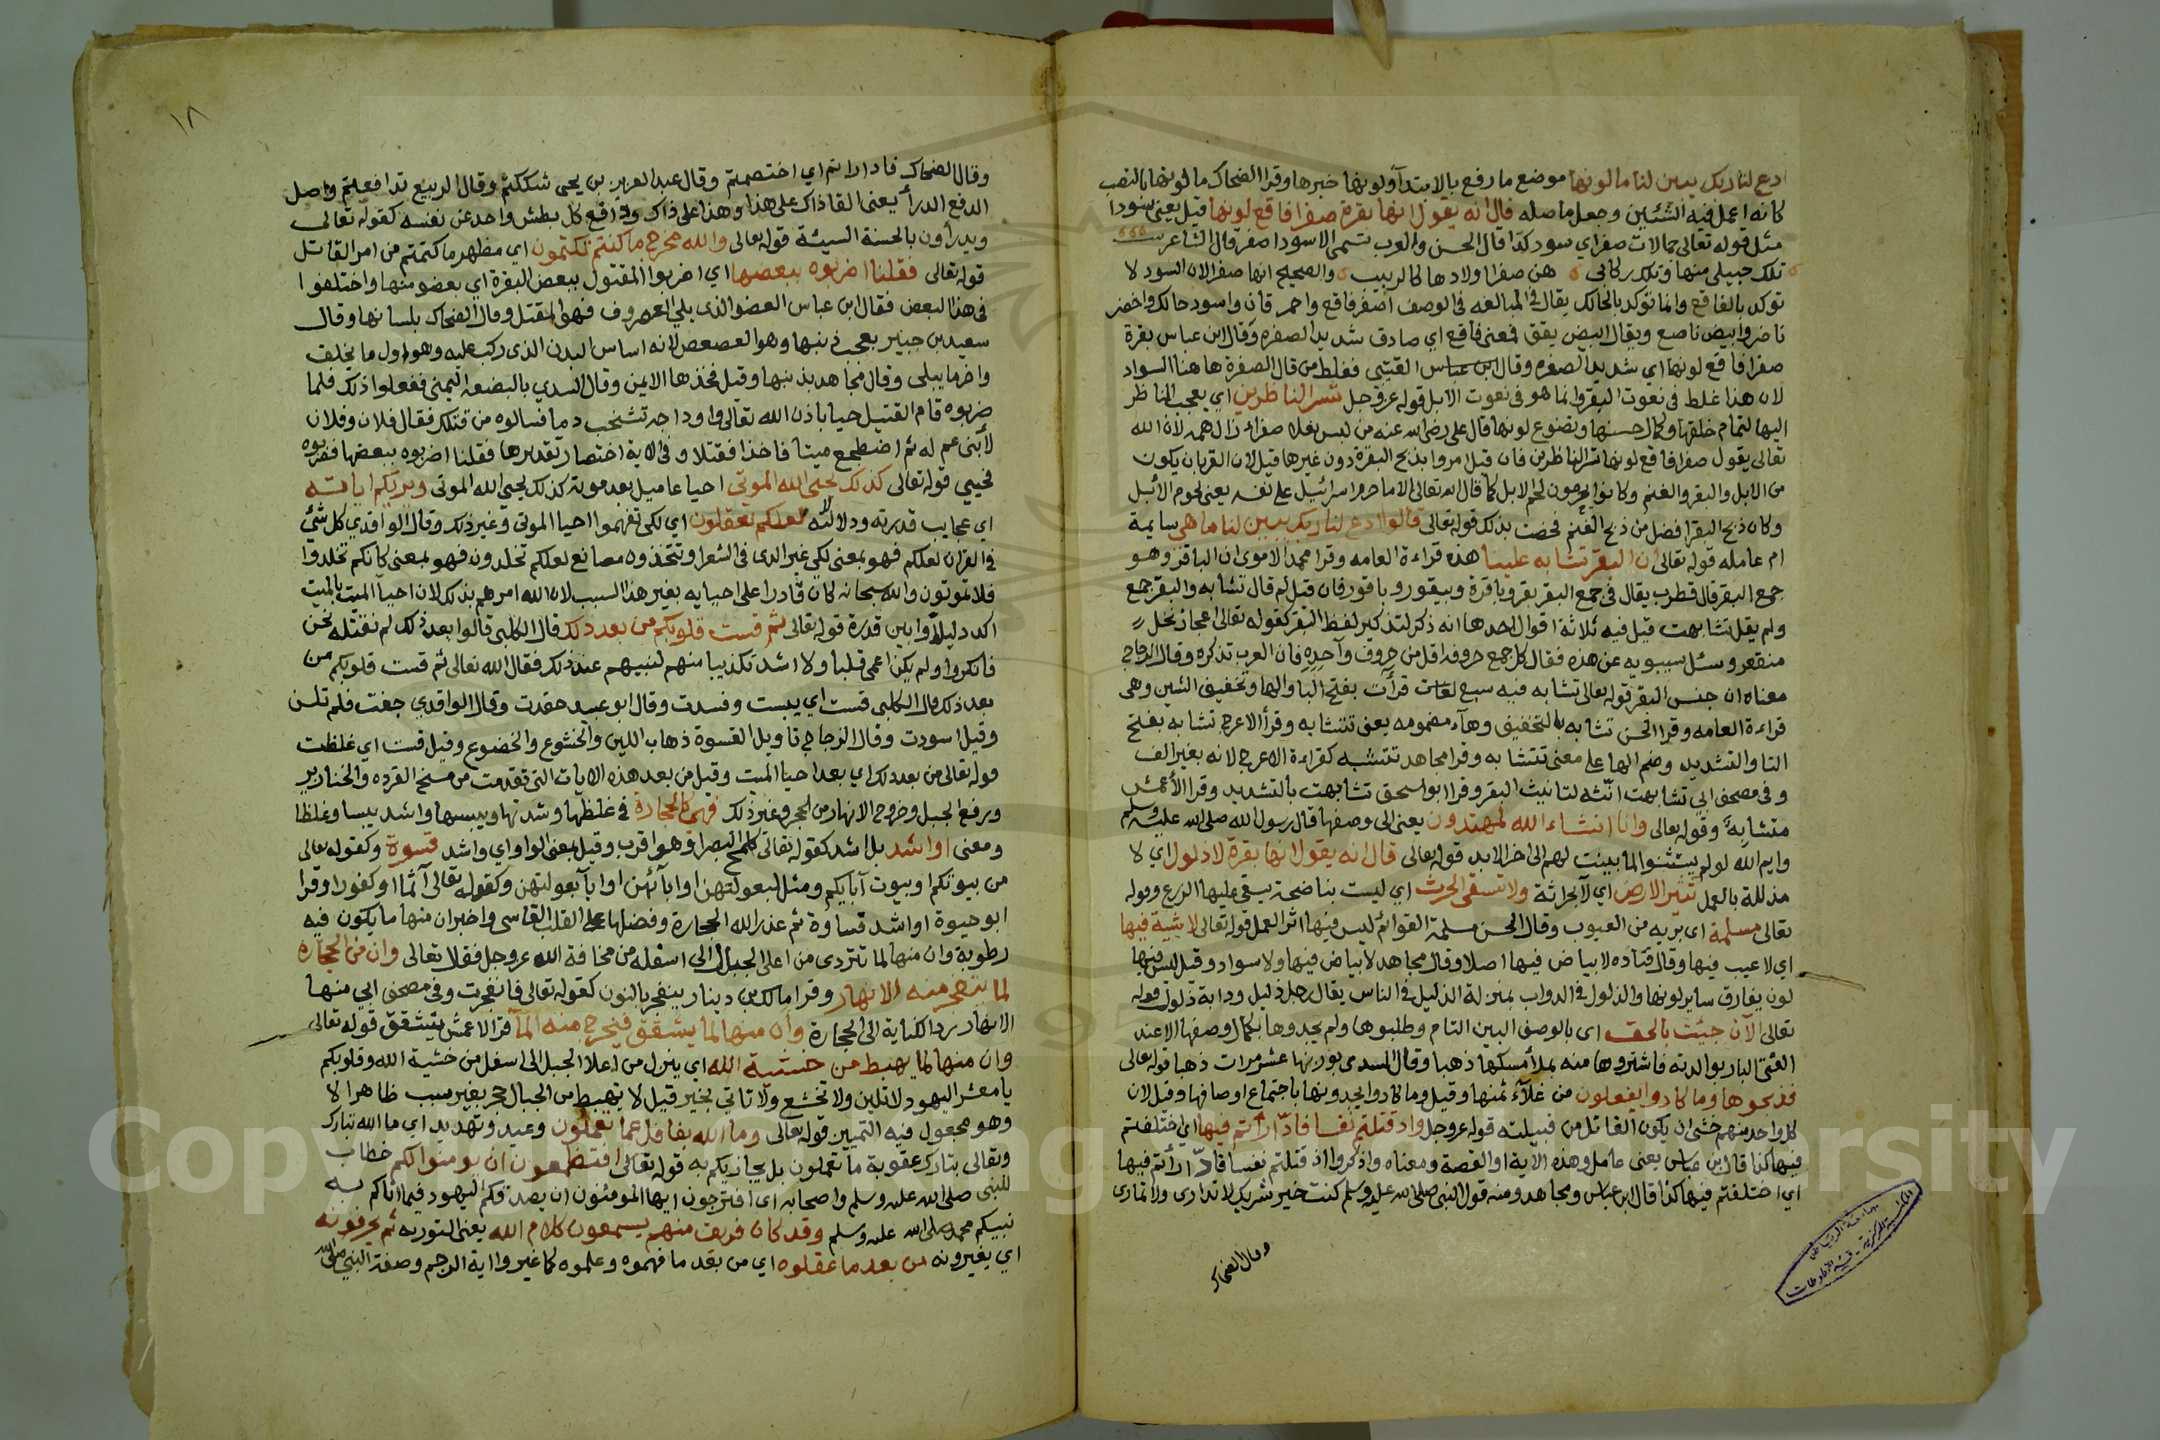 ادع لنا ربك يبين لنا ما لونها موضع ما رفع بالابتدآ ولونها خبرها وقرا الضحاك ما لونها بالنصب
كانه اعمل فيه التبيين وجعل ما صله قال انه يقول انها بقرة صفرا فاقع لونها قيل يعني سودا
مثل قوله تعالى جمالات صفر اي سود كذا قال الحسن والعرب تسمى الاسود اصفر قال الشاعر
تلك خيلي منها وتلك ركابي هن صفر اولادها كالزبيب والصحيح انها صفرا لان السود لا
توكد بالفاقع وانما توكد بالحالك يقال في المبالغه في الوصف اصفر فاقع واحمر قان واسود حالك واخضر
ناضر وابيض ناصع ويقال ابيض يقق فمعنى فاقع اي صادق شديد الصفره وقال ابن عباس بقرة
صفرا فاقع لونها اي شديد الصفره وقال القتيبي فغلط من قال الصفرة هاهنا السواد
لان هذا غلط في نعوت البقر وانما هو في نعوت الابل قوله عز وجل تسر الناظرين اي يعجب الناظر
اليها لتمام خلقها وكمال حسنها ونصوع لونها قال على رضى الله عنه من لبس نعلا صفرا زال همه لان الله
تعالى يقول صفرا فاقع لونها تسر الناظرين فان قيل امروا بذبح البقرة دون غيرها قيل لان القربان يكون
من الابل والبقر والغنم وكانوا يحرمون لحم الابل كما قال الله تعالى الا ما حرم اسرائيل على نفسه يعنى لحوم الابل
وكان ذبح البقر افضل من ذبح الغنم فخصت بذلك قوله تعالى قالوا ادع لنا ربك يبين لنا ما هي سايمة
ام عامله قوله تعالى ان البقر تشابه علينا هذه قراءة العامه وقرا محمد الاموى ان الباقر وهو
جمع البقر قال قطرب يقال في جمع البقر بقر وباقرة وبيقور وباقور فان قيل لم قال تشابه والبقر جمع
ولم يقل تشابهت قيل فيه ثلاثة اقوال احدها انه ذكر لتذكير لفظ البقر كقوله تعالى اعجاز نخل
منقعر وسئل سيبويه عن هذه فقال كل جمع حروفه اقل من حروف واحده فان العرب تذكره وقال الزجاج
معناه ان جنس البقر قوله تعالى تشابه فيه سبع لغات قرأت بفتح البا والها وتخفيف الشين وهى
قراءة العامه وقرا الحسن تشابه بالتخفيف وهآء مضمومه يعنى تتشابه وقرأ الاعرج تشابه بفتح
التا والتشديد وضم الها على معنى تتشابه وقرا مجاهد تتشبه كقراءة الاعرج لانه بغير الف
وفى مصحف ابي تشابهت انثه لتانيث البقر وقرا ابو اسحق تشابهت بالتشديد وقرا الأعمش
متشابه وقوله تعالى وانا انشاء الله لمهتدون يعنى الى وصفها قال رسول الله صلى الله عليه وسلم
وايم الله لو لم يستثنوا لما بينت لهم الى اخر الابد قوله تعالى قال انه يقول انها بقرة لا ذلول اي لا
مذللة بالعمل تثير الارض اي لا بحراثة ولا تسقى الحرث اي ليست بناضحة يسقى عليها الزرع وقوله
تعالى مسلمة اي بريه من العيوب وقال الحسن مسلمة القوائم ليس فيها اثر العمل قوله تعالى لا شية فيها
اي لا عيب فيها وقال قتاده لا بياض فيها اصلا وقال مجاهد لا بياض فيها ولا سواد وقيل ليس فيها
لون يفارق ساير لونها والذلول في الدواب بمنزلة الذليل في الناس يقال رجل ذليل ودابة ذلول قوله
تعالى الآن جئت بالحق اي بالوصف البين التام وطلبوها ولم يجدوها بكمال وصفها الا عند
الفتى البار بوالدته فاشتروها منه بملأ مسكها ذهبا وقال السدى بوزنها عشر مرات ذهبا قوله تعالى
فذبحوها وما كادوا يفعلون من غلآء ثمنها وقيل وما كادوا يجدونها باجتماع اوصافها وقيل لان
كل واحد منهم خشى ان يكون القاتل من قبيلته قوله عز وجل واذ قتلتم نفسا فادارأتم فيها اي اختلفتم
فيها كذا قال ابن عباس يعنى عامل وهذه الآية اول القصة ومعناه واذكروا اذ قتلتم نفسا فادارأتم فيها
اي اختلفتم فيها كذا قال ابن عباس ومجاهد ومنه قول النبى صلى الله عليه وسلم كنت خير شريك لا تدارى ولا تمارى
وقال الضحاك
جامعة الرياض
المكتبة المركزية - قسم المخطوطات
١٨
وقال الضحاك فادارأتم اي اختصمتم وقال عبد العزيز بن يحيى شككتم وقال الربيع تدافعتم واصل
الدفع الدرأ يعنى القا ذاك على هذا وهذا على ذاك ودافع كل بطش واحد عن نفسه كقوله تعالى
ويدرأون بالحسنة السيئة قوله تعالى والله مخرج ما كنتم تكتمون اي مظهر ما كتمتم من امر القاتل
قوله تعالى فقلنا اضربوه ببعضها اي اضربوا المقتول ببعض البقرة اي بعضو منها واختلفوا
في هذا البعض فقال ابن عباس العضو الذى يلي الغضروف فهو المقتل وقال الضحاك بلسانها وقال
سعيد بن جبير بعجب ذنبها وهو العصعص لانه اساس البدن الذى ركب عليه وهو اول ما يخلق
واخر ما يبلى وقال مجاهد بذنبها وقيل فخذها الايمن وقال السدي بالبضعه اليمنى ففعلوا ذلك فلما
ضربوه قام القتيل حيا باذن الله تعالى واوداجه تشخب دما فسالوه من قتلك فقال فلان وفلان
لأبنى عم له ثم اضطجع ميتا فاخذا فقتلا وفى الاية اختصار تقديرها فقلنا اضربوه ببعضها فضربوه
فحيي قوله تعالى كذلك يحيى الله الموتى احيا عاميل بعد موته كذلك يحيى الله الموتى ويريكم اياته
اي عجايب قدرته ودلالاته لعلكم تعقلون اي لكى تفهموا احيا الموتى وغير ذلك وقال الواقدي كل شي
في القران لعلكم فهو بمعنى لكي غير الذى في الشعرا وتتخذوه مصانع لعلكم تخلدون فهو بمعنى كانكم تخلدوا
فلا تموتون والله سبحانه كان قادرا على احيايه بغير هذا السبب لان الله امرهم بذلك لان احيآ الميت بالميت
اكد دليلا وابين قدرة قوله تعالى ثم قست قلوبكم من بعد ذلك قال الكلبى قالوا بعد ذلك لم نقتله نحن
فانكروا ولم يكن اعمى قلبا ولا اشد تكذيبا منهم لنبيهم عند ذلك فقال الله تعالى ثم قست قلوبكم من
بعد ذلك قال الكلبى قست اي يبست وفسدت وقال ابو عبيد حقدت وقال الواقدي جفت فلم تلن
وقيل اسودت وقال الزجاج تاويل القسوة ذهاب اللين والخشوع والخضوع وقيل قست اي غلظت
قوله تعالى من بعد ذلك اي بعد احيا الميت وقيل من بعد هذه الايات التى تقدمت من مسخ القرده والخنازير
ورفع الجبل وخروج الانهار من الحجر وغير ذلك فهى كالحجارة في غلظها وشدتها ويبسها واشد يبسا وغلظا
ومعنى او اشد بل اشد كقوله تعالى كلمح البصر او هو اقرب وقيل بمعنى الواو اي واشد قسوة وكقوله تعالى
من بيوتكم او بيوت آبايكم ومثل لبعولتهن او ابآئهن او ابآ بعولتهن وكقوله تعالى آثما او كفورا وقرا
ابو حيوة او اشد قساوة ثم عذر الله الحجارة وفضلها على القلب القاسى واخبر ان منها ما يكون فيه
رطوبة وان منها لما تتردى من اعلى الجبل الى اسفله من مخافة الله عز وجل فقال تعالى وان من الحجارة
لما يتفجر منه الانهار وقرا مالك بن دينار ينفجر بالنون كقوله تعالى فانفجرت وفى مصحف ابي منها
الانهار رد الكناية الى الحجارة وان منها لما يشقق فيخرج منه المآ قرا الاعمش يتشقق قوله تعالى
وان منها لما يهبط من خشية الله اي ينزل من اعلا الجبل الى اسفل من خشية الله وقلوبكم
يا معشر اليهود لا تلين ولا تخشع ولا تاتي بخير قيل لا يهبط من الجبال حجر بغير سبب ظاهر الا
وهو مجعول فيه التمييز قوله تعالى وما الله بغافل عما تعملون وعيد وتهديد اي ما الله تبارك
وتعالى بتارك عقوبة ما تعملون بل يجازيكم به قوله تعالى افتطمعون ان يومنوا لكم خطاب
للنبى صلى الله عليه وسلم واصحابه اي افترجون ايها المومنون ان يصدقكم اليهود فيما اتاكم به
نبيكم محمد صلى الله عليه وسلم وقد كان فريق منهم يسمعون كلام الله يعنى التوريه ثم يحرفونه
اي يغيرونه من بعد ما عقلوه اي من بعد ما فهموه وعلموه كما غيروا اية الرجم وصفة النبى صلى الله